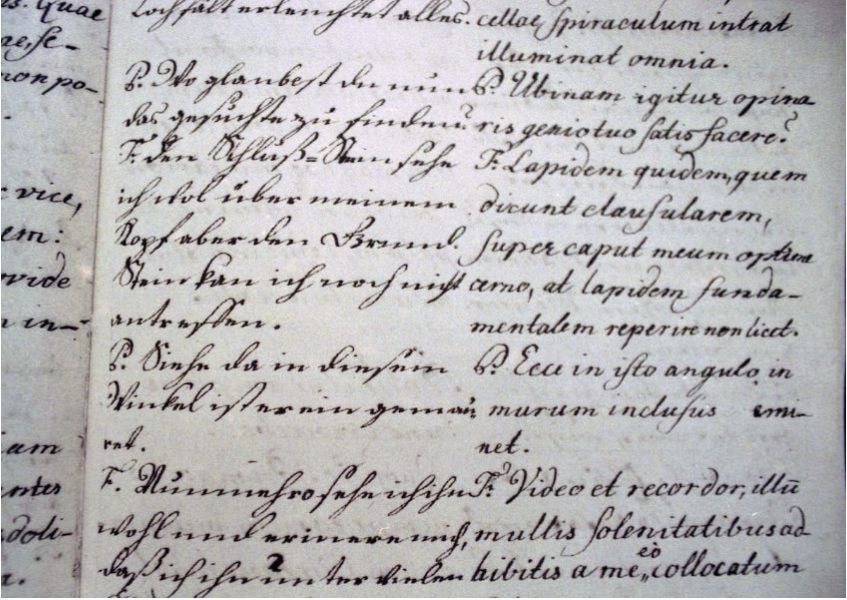 s. Quae
ae, se-
non po-
vice,
em:
ovide
n in-
am
antes
doli-
Lochfält erleuchtet alles.
P. Wo glaubest du nun
das gesuchte zu finden?
F. den Schluß-Stein sehe
ich wol über meinem
Kopf aber den Grund
Stein kan ich noch nicht
antreffen.
P. Siehe da in diesem
Winkel ist er ein gemau
ret.
F. Nunmehro sehe ich ihn
wohl und erinnere mich,
daß ich ihn unter vielen
2
cellae spiraculum intrat
illuminat omnia.
P. Ubinam igitur opina
ris genio tuo satisfacere?
F. Lapidem quidem, quem
dicunt clausularem,
super caput meum optime
cerno, at lapidem funda-
mentalem reperire non licet.
P. Ecce in isto angulo in
murum inclusus emi-
net.
F. Video et recordor, illū
multis solenitatibus ad-
hibitis a me eò collocatum